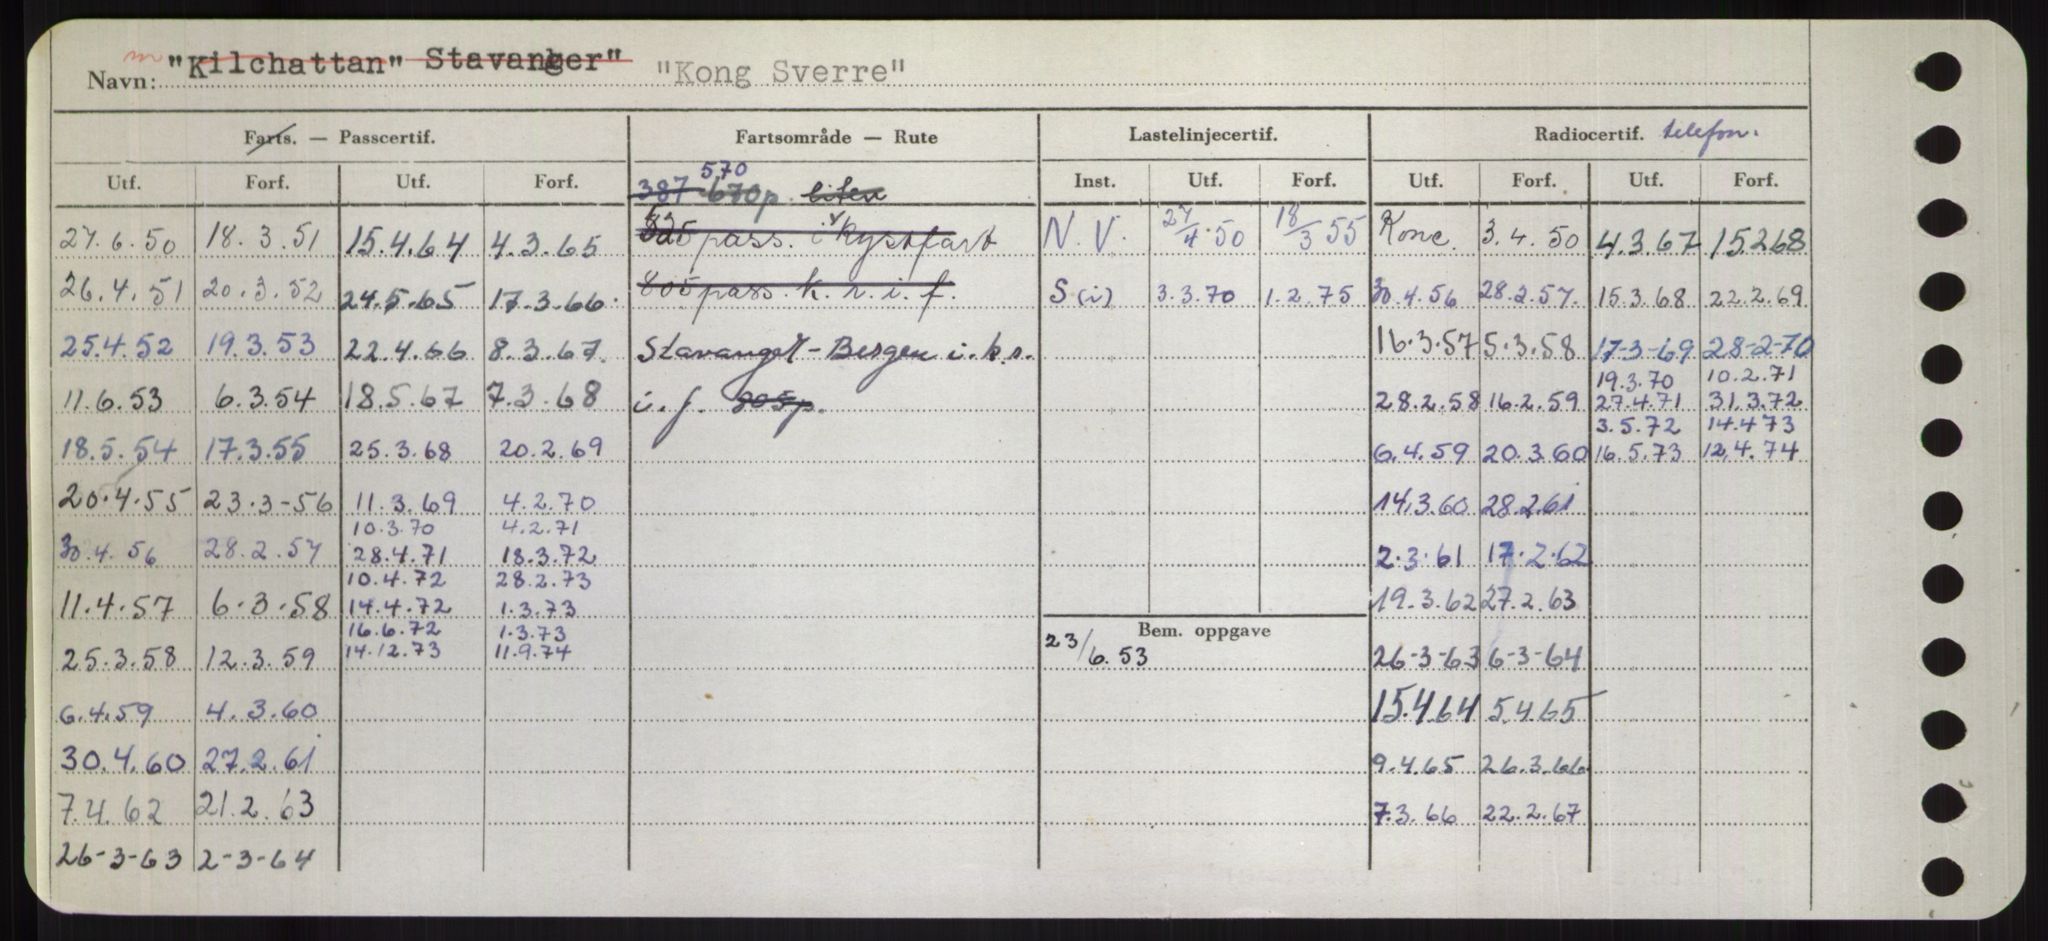 Navn: "Kilchattan" Stavanger" "Kong Sverre"
Farts. — Passcertif. Fartsområde — Rute Lastelinjecertif. Radiocertif. telefon.
Utf. Forf. Utf. Forf. 387 670 p. liten 570 Inst. Utf. Forf. Utf. Forf. Utf. Forf.
27.6.50 18.3.51 15.4.64 4.3.65 pass. i kystfart N.V. 27/4.50 18/3 55 Konc. 3.4.50 4.3.67 15.2.68
26.4.51 20.3.52 24.5.65 17.3.66. 805 pass. k.r.i.f. S(i) 3.3.70 1.2.75 30.4.56 28.2.57. 15.3.68 22.2.69
25.4.52 19.3.53 22.4.66 8.3.67. Stavanger - Bergen i.k.r. 16.3.57 5.3.58 17-3-69 28-2-70
19.3.70 10.2.71
11.6.53 6.3.54 18.5.67 7.3.68 i.f. 805p. 28.2.58 16.2.59 27.4.71 31.3.72
3.5.72 14.4.73
18.5.54 17.3.55 25.3.68 20.2.69 6.4.59 20.3.60 16.5.73 12.4.74
20.4.55 23.3-56 11.3.69 4.2.70 14.3.60 28.2.61
10.3.70 4.2.71
30.4.56 28.2.57 28.4.71 18.3.72 2.3.61 17.2.62
10.4.72 28.2.73
11.4.57 6.3.58 14.4.72 1.3.73 19.3.62 27.2.63
16.6.72 1.3.73 Bem. oppgave
25.3.58 12.3.59 14.12.73 11.9.74 23/6.53 26-3-63 6-3-64
6.4.59 4.3.60 15.4.64 5.4.65
30.4.60 27.2.61 9.4.65 26.3.66
7.4.62 21.2.63 7.3.66 22.2.67
26-3-63 2-3-64